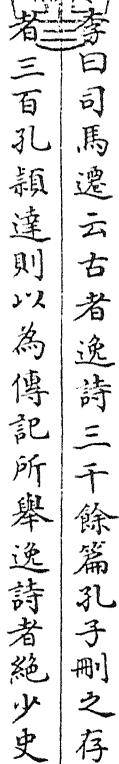 李曰司馬遷云古者逸詩三千餘篇孔子刪之存
者三百孔頴達則以為傳記所舉逸詩者絶少史